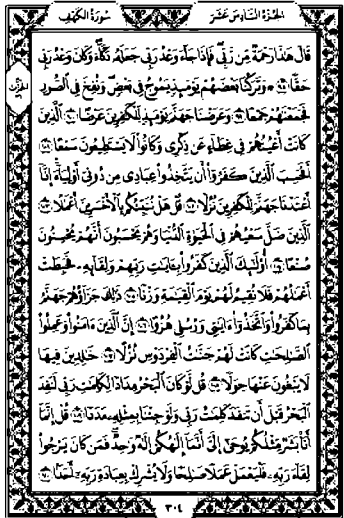 الجزء السادس عشر
سورة الكهف
قَالَ هَٰذَا رَحْمَةٌ مِّن رَّبِّي ۖ فَإِذَا جَاءَ وَعْدُ رَبِّي جَعَلَهُ دَكَّاءَ ۖ وَكَانَ وَعْدُ رَبِّي
حَقًّا ﴿٩٨﴾ ۞ وَتَرَكْنَا بَعْضَهُمْ يَوْمَئِذٍ يَمُوجُ فِي بَعْضٍ ۖ وَنُفِخَ فِي الصُّورِ
فَجَمَعْنَاهُمْ جَمْعًا ﴿٩٩﴾ وَعَرَضْنَا جَهَنَّمَ يَوْمَئِذٍ لِّلْكَافِرِينَ عَرْضًا ﴿١٠٠﴾ الَّذِينَ
كَانَتْ أَعْيُنُهُمْ فِي غِطَاءٍ عَن ذِكْرِي وَكَانُوا لَا يَسْتَطِيعُونَ سَمْعًا ﴿١٠١﴾
أَفَحَسِبَ الَّذِينَ كَفَرُوا أَن يَتَّخِذُوا عِبَادِي مِن دُونِي أَوْلِيَاءَ ۚ إِنَّا
أَعْتَدْنَا جَهَنَّمَ لِلْكَافِرِينَ نُزُلًا ﴿١٠٢﴾ قُلْ هَلْ نُنَبِّئُكُم بِالْأَخْسَرِينَ أَعْمَالًا ﴿١٠٣﴾
الَّذِينَ ضَلَّ سَعْيُهُمْ فِي الْحَيَاةِ الدُّنْيَا وَهُمْ يَحْسَبُونَ أَنَّهُمْ يُحْسِنُونَ
صُنْعًا ﴿١٠٤﴾ أُولَٰئِكَ الَّذِينَ كَفَرُوا بِآيَاتِ رَبِّهِمْ وَلِقَائِهِ فَحَبِطَتْ
أَعْمَالُهُمْ فَلَا نُقِيمُ لَهُمْ يَوْمَ الْقِيَامَةِ وَزْنًا ﴿١٠٥﴾ ذَٰلِكَ جَزَاؤُهُمْ جَهَنَّمُ
بِمَا كَفَرُوا وَاتَّخَذُوا آيَاتِي وَرُسُلِي هُزُوًا ﴿١٠٦﴾ إِنَّ الَّذِينَ آمَنُوا وَعَمِلُوا
الصَّالِحَاتِ كَانَتْ لَهُمْ جَنَّاتُ الْفِرْدَوْسِ نُزُلًا ﴿١٠٧﴾ خَالِدِينَ فِيهَا
لَا يَبْغُونَ عَنْهَا حِوَلًا ﴿١٠٨﴾ قُل لَّوْ كَانَ الْبَحْرُ مِدَادًا لِّكَلِمَاتِ رَبِّي لَنَفِدَ
الْبَحْرُ قَبْلَ أَن تَنفَدَ كَلِمَاتُ رَبِّي وَلَوْ جِئْنَا بِمِثْلِهِ مَدَدًا ﴿١٠٩﴾ قُلْ إِنَّمَا
أَنَا بَشَرٌ مِّثْلُكُمْ يُوحَىٰ إِلَيَّ أَنَّمَا إِلَٰهُكُمْ إِلَٰهٌ وَاحِدٌ ۖ فَمَن كَانَ يَرْجُوا
لِقَاءَ رَبِّهِ فَلْيَعْمَلْ عَمَلًا صَالِحًا وَلَا يُشْرِكْ بِعِبَادَةِ رَبِّهِ أَحَدًا ﴿١١٠﴾
٣٠٤